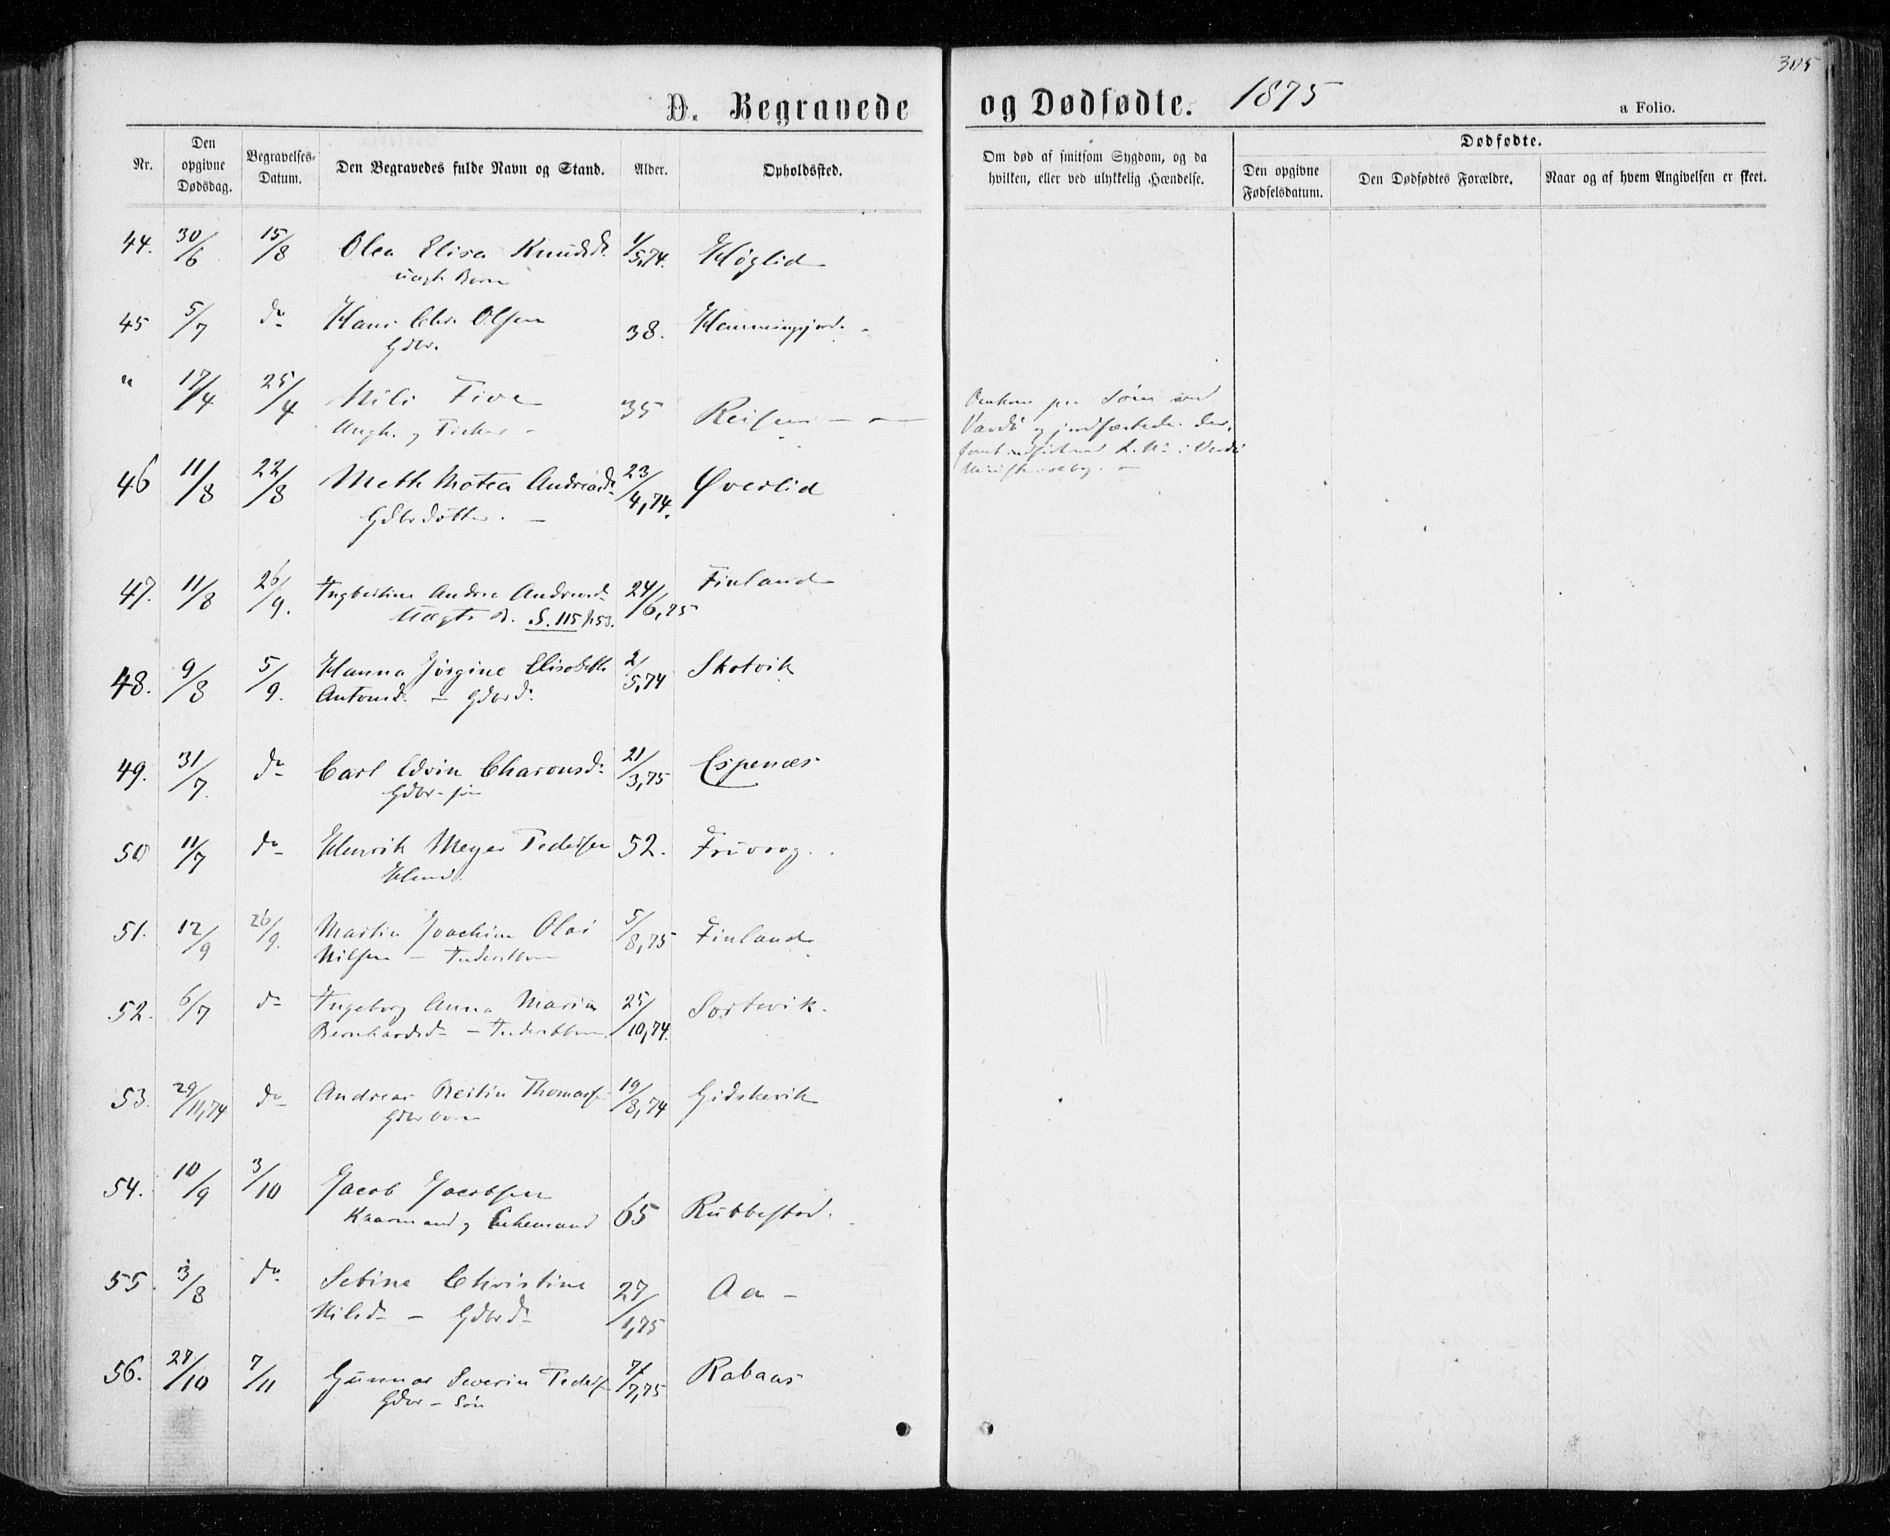 305
D. Begravede og Dødfødte. 1875
a Folio.
Nr.
Den opgivne Dødsdag.
Begravelses-Datum.
Den Begravedes fulde Navn og Stand.
Alder.
Opholdssted.
Om død af smitsom Sygdom, og da hvilken, eller ved ulykkelig Hændelse.
Dødfødte.
Den opgivne Fødselsdatum.
Den Dødfødtes Forældre.
Naar og af hvem Angivelsen er skeet.
44. 30/6 15/8 Olea Elisa Knudsd. 1/5,74. Høglid
uægt. Barn
45 5/7 do Hans Chr. Olsen 38.
Gdbr.
" 17/4 25/4 Nils 35 Reisen
Ungk. og Fisker
Omkom paa Søen ved
Vardø og
46 11/8 22/8 Meth Motea Andreasd. 23/4,74. Øverlid
Gdbrdotter.
47. 11/8 26/9. Ingbertine Andrea Andreasd. 24/6,75 Finland
Uægte B. S. 115 N 53.
48. 9/8 5/9. Hanna Jørgine Elisabeth 2/5,74 Skotvik
Antonsd. - Gdbrd.
49. 31/7. do Carl Edvin Charonsd. 21/3,75 Espenæs
Gdbr-søn
50 11/7 do Henrik Meyer Pedersen 52.
51. 12/9 26/9. Martin Joachim Olai 5/8,75 Finland
Nilsen - Inderstbarn
52. 6/7 do Ingeborg Anna Maria 25/10,74. Sortevik.
Bernhardsd. - Inderstbarn
53. 29/11,74 do Andreas Thomass. 19/8,74 Gidskevik
Gdbrbarn
54. 10/9 3/10 Jacob Jacobsen 65 Rubbestad.
Kaarmand og Enkemand
55. 3/8 do Sebine Christine 27/1,75 Aa -
Nilsd. - Gdbrd.
56. 27/10 7/11 Gunnar Severin Peders. 7/7,75 Rabaas
Gdbr - Søn